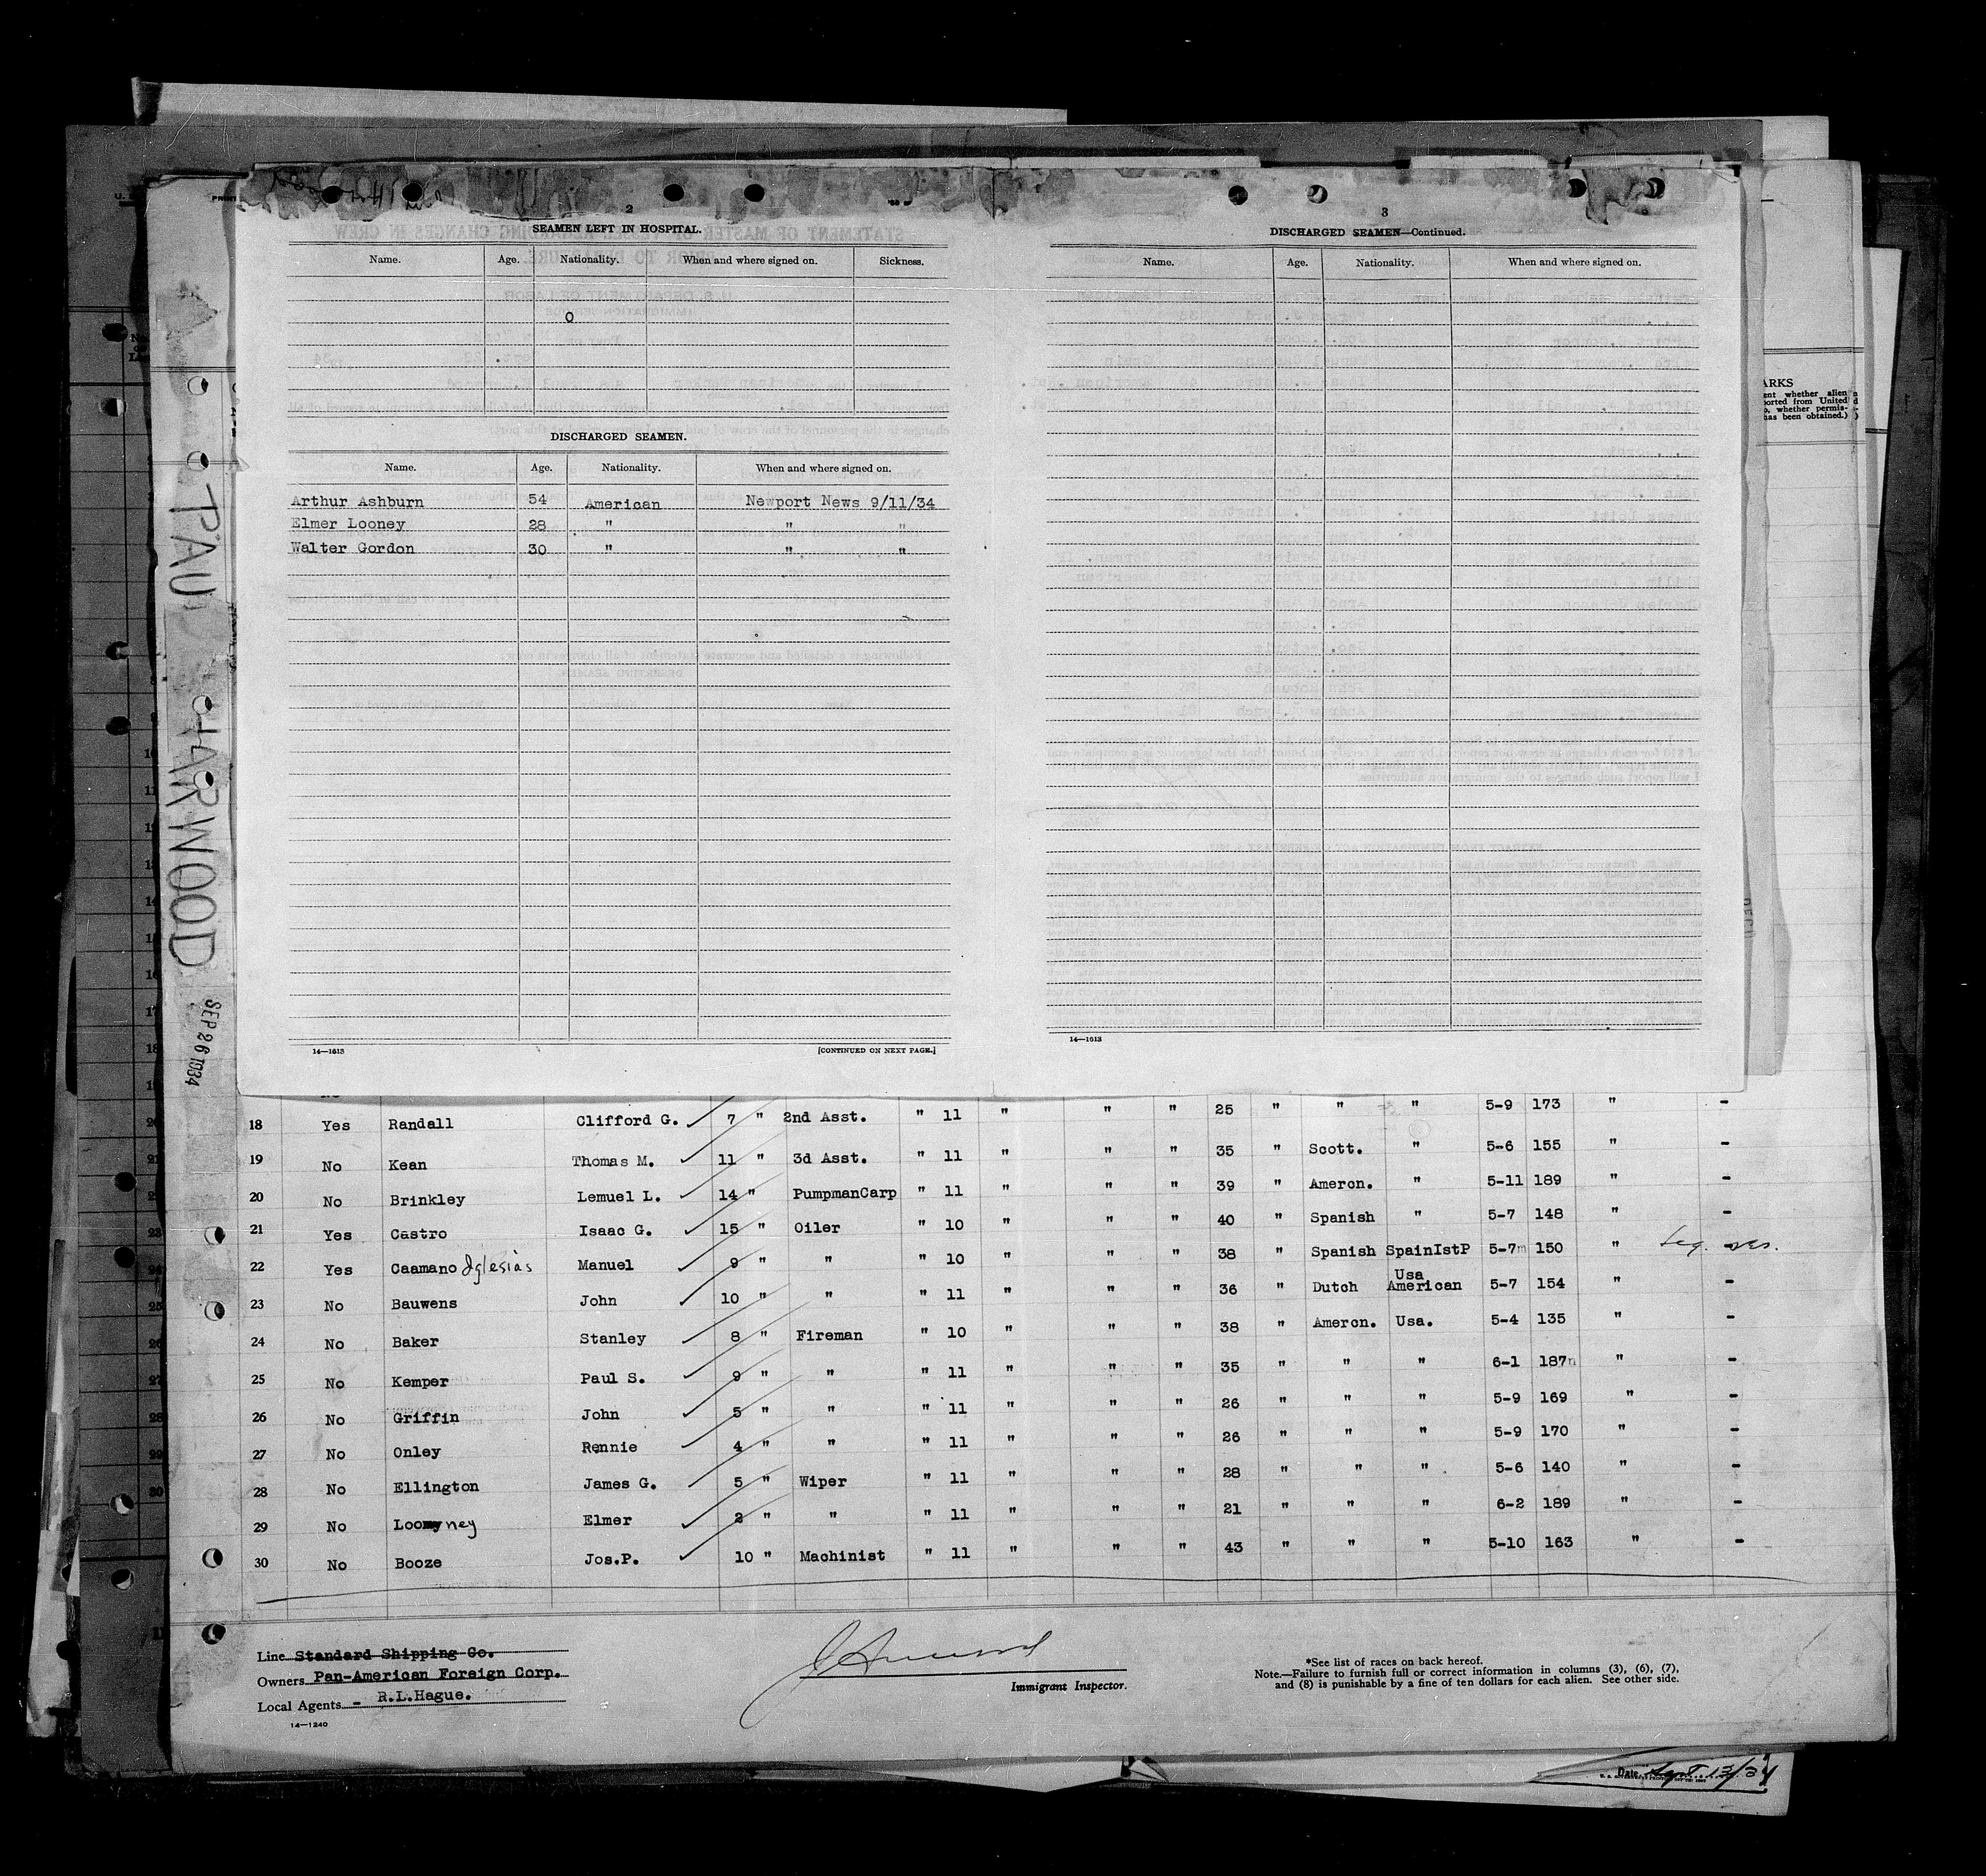 2
SEAMEN LEFT IN HOSPITAL.
Name. Age. Nationality. When and where signed on. Sickness.
O
DISCHARGED SEAMEN.
Name. Age. Nationality. When and where signed on.
Arthur Ashburn 54 American Newport News 9/11/34
Elmer Looney 28 " " "
Walter Gordon 30 " " "
14—1613 [CONTINUED ON NEXT PAGE.]
3
DISCHARGED SEAMEN—Continued.
Name. Age. Nationality. When and where signed on.
14—1613
PAUL HARWOOD
SEP 26 1934
18 Yes Randall Clifford G. 7 " 2nd Asst. " 11 " " " 25 " " " 5-9 173 " -
19 No Kean Thomas M. 11 " 3d Asst. " 11 " " " 35 " Scott. " 5-6 155 " -
20 No Brinkley Lemuel L. 14 " PumpmanCarp " 11 " " " 39 " Amercn. " 5-11 189 " -
21 Yes Castro Isaac G. 15 " Oiler " 10 " " " 40 " Spanish " 5-7 148 " -
22 Yes Caamano Iglesias Manuel 9 " " " 10 " " " 38 " Spanish SpainIstP 5-7 150 "
23 No Bauwens John 10 " " " 11 " " " 36 " Dutch Usa American 5-7 154 " -
24 No Baker Stanley 8 " Fireman " 10 " " " 38 " Amercn. Usa. 5-4 135 " -
25 No Kemper Paul S. 9 " " " 11 " " " 35 " " " 6-1 187 " -
26 No Griffin John 5 " " " 11 " " " 26 " " " 5-9 169 " -
27 No Onley Rennie 4 " " " 11 " " " 26 " " " 5-9 170 " -
28 No Ellington James G. 5 " Wiper " 11 " " " 28 " " " 5-6 140 " -
29 No Looney Elmer 2 " " " 11 " " " 21 " " " 6-2 189 " -
30 No Booze Jos.P. 10 " Machinist " 11 " " " 43 " " " 5-10 163 " -
Line Standard Shipping Co.
Owners Pan-American Foreign Corp.
Local Agents - R.L.Hague.
14—1240
Immigrant Inspector.
*See list of races on back hereof.
Note.—Failure to furnish full or correct information in columns (3), (6), (7),
and (8) is punishable by a fine of ten dollars for each alien. See other side.
Date Sept 13/34